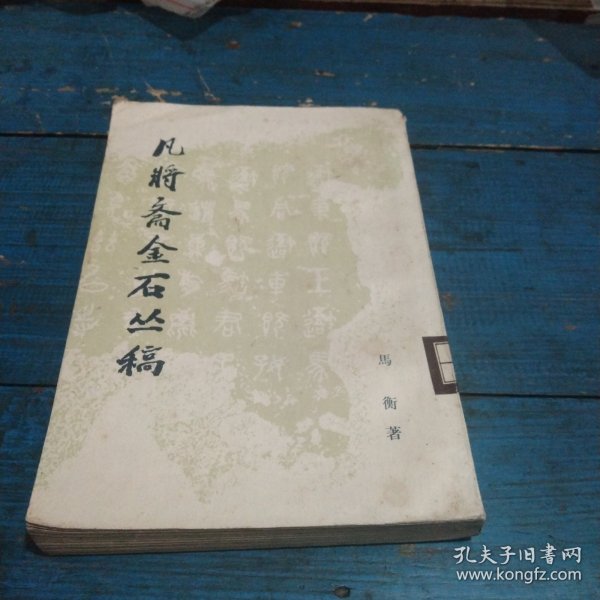 凡將斋金石丛稿
馬衡著
孔夫子旧书网
www.kongfz.com